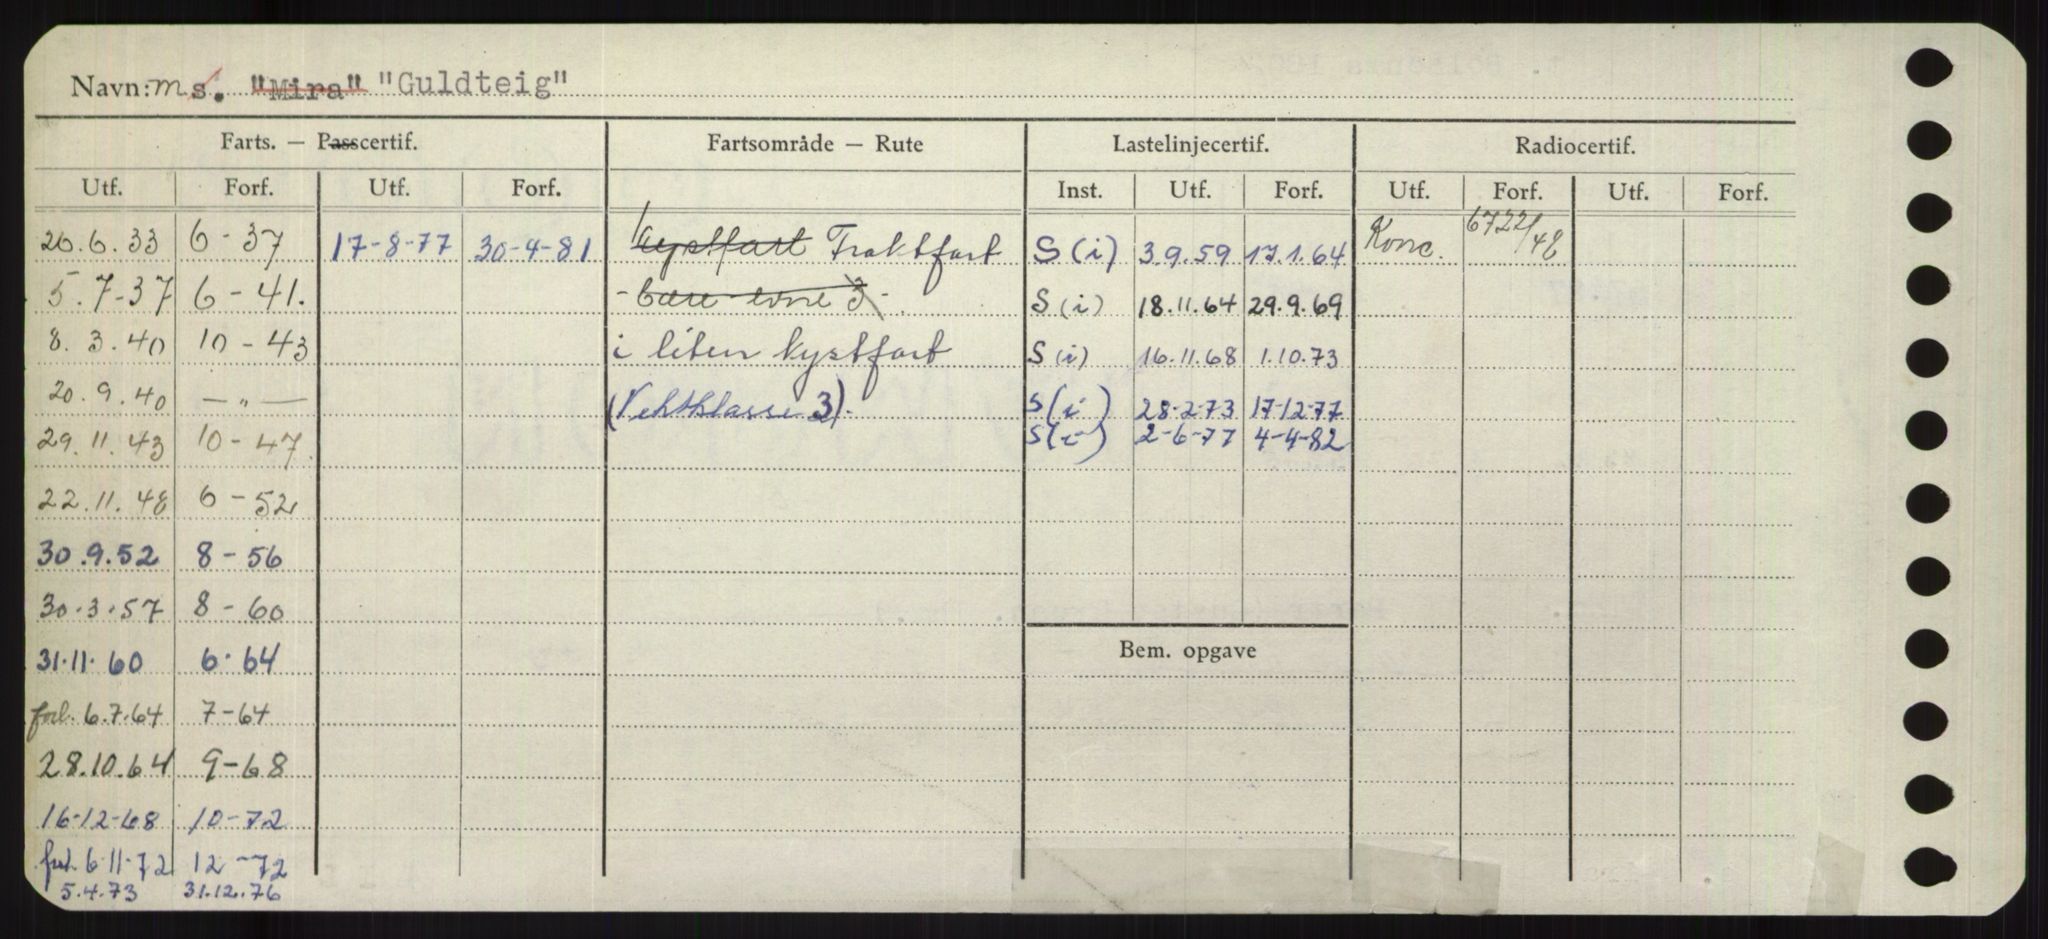 Navn: ms. "Mira" "Guldteig"
Farts. — Passcertif. Fartsområde — Rute Lastelinjecertif. Radiocertif.
Utf. Forf. Utf. Forf. Inst. Utf. Forf. Utf. Forf. Utf. Forf.
26.6.33 6-37 17-8-77 30-4-81 kystfart Fraktfart S (i) 3.9.59 17.1.64 Konc. 6722/48
5.7-37 6-41. - bære-evne 3 - S (i) 18.11.64 29.9.69
8.3.40 10-43 i liten kystfart S (i) 16.11.68 1.10.73
20.9.40 — „ — (Vektklasse 3). S (i) 28-2-73 17-12-77
29.11.43 10-47. S (i) 2-6-77 4-4-82
22.11.48 6-52
30.9.52 8-56
30.3.57 8-60
31.11.60 6.64
Bem. opgave
forl. 6.7.64 7-64
28.10.64 9-68
16-12-68 10-72
forl. 6-11-72 12-72
5.4.73 31.12.76